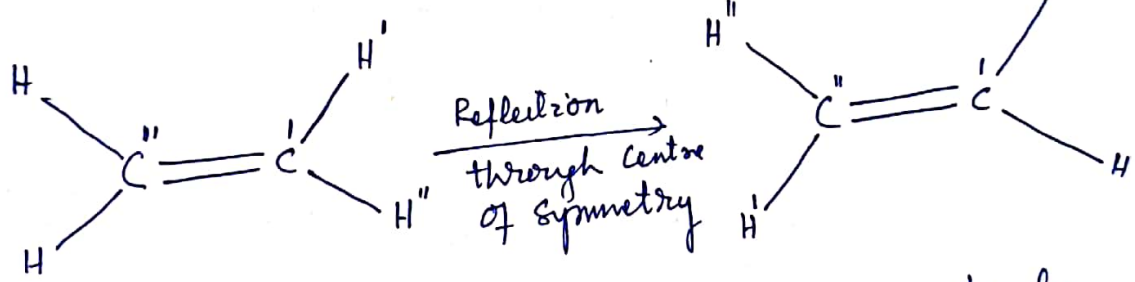 H
H'
C'' = C'
H''
H
Reflection
through Centre
of Symmetry
H''
C'' = C'
H'
H